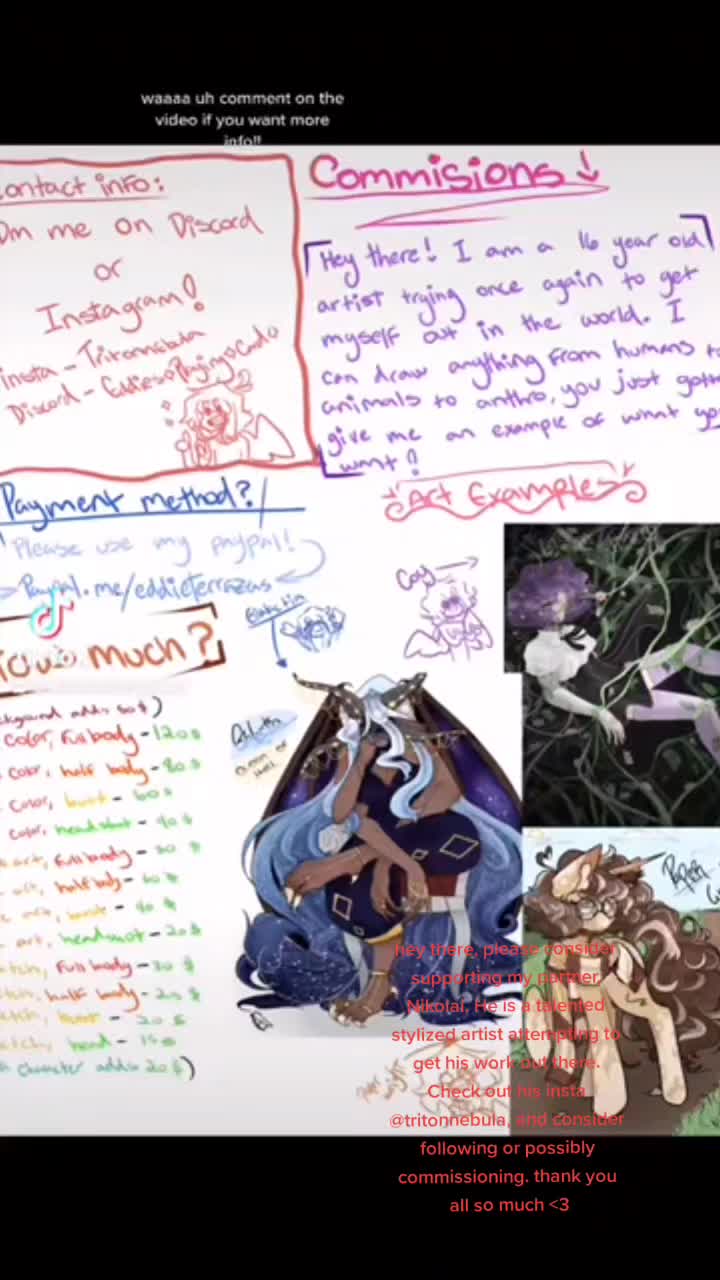 waaaa uh comment on the
video if you want more
info!!
contact info:
Dm me on Discord
or
Instagram!
insta - Tritonnebula
Discord -
Commisions
Hey there! I am a 16 year old
artist trying once again to get
myself out in the world. I
can draw anything from humans to
animals to anthro, you just gotta
give me an example of what you
want!
Payment method?
Please use my paypal!
Paypal.me/eddieTerrazas
Art Examples
much?
background adds 50$)
color, full body - 120$
color, half body - 80$
color, bust - 60$
color, headshot - 40$
art, full body -
art, half body - 60$
art, bust - 40$
art, headshot - 20$
full body - 30$
half body - 25$
bust - 20$
head - 15$
character adds 20$)
Queen of
hell
hey there, please consider
supporting my partner,
Nikolai, He is a talented
stylized artist attempting to
get his work out there.
Check out his insta
@tritonnebula, and consider
following or possibly
commissioning. thank you
all so much <3